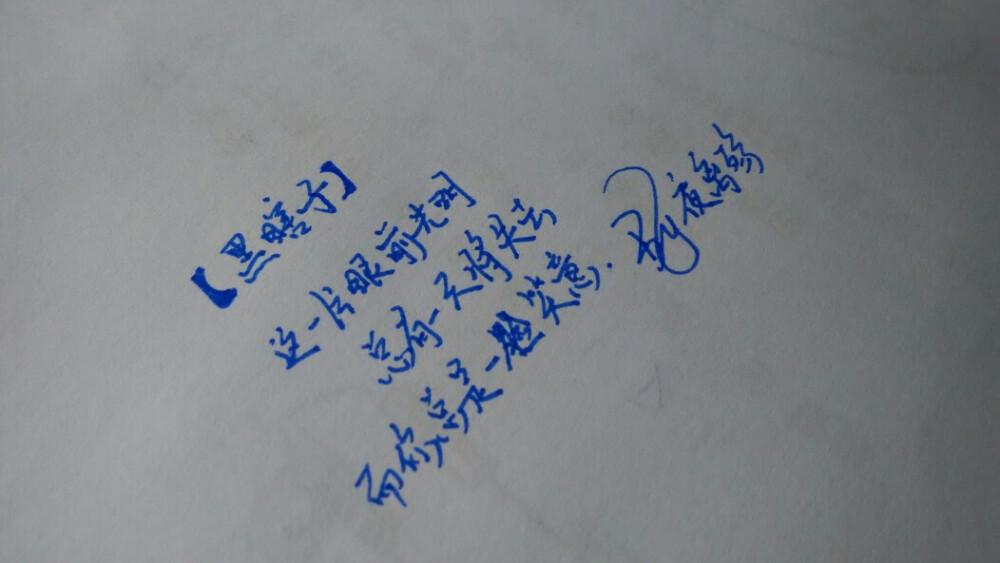 【黑瞎子】
这一片眼前光明
总有一天将失去
而你总是一 笑意.
夜离殇